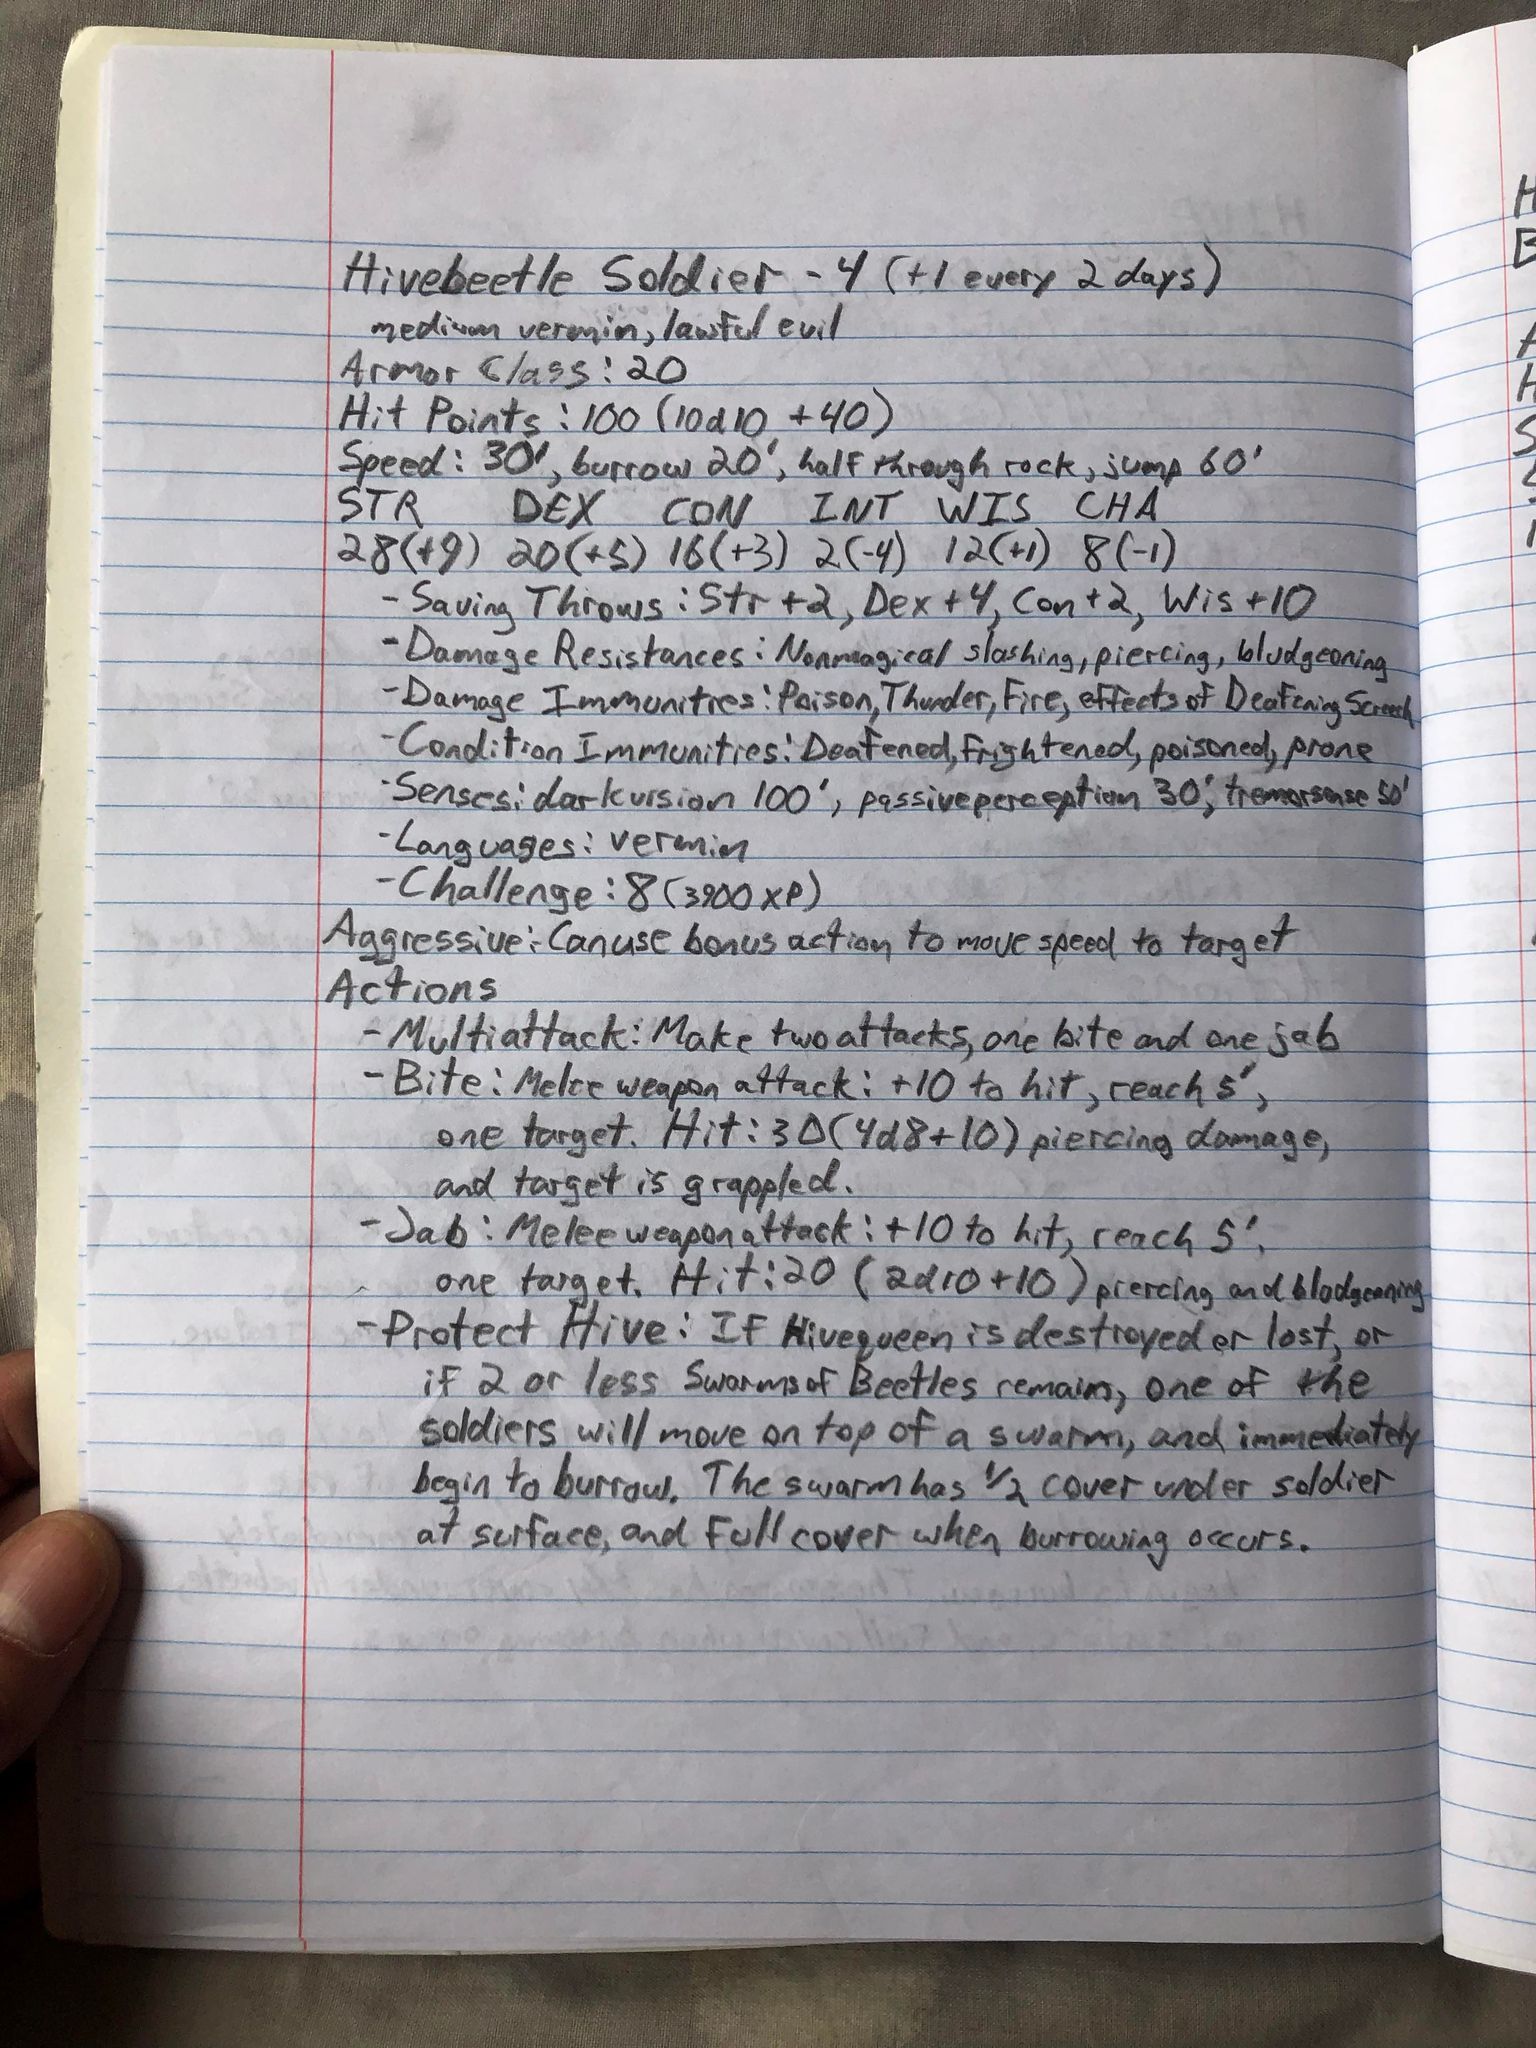 Hivebeetle Soldier - 4 (+1 every 2 days)
medium vermin, lawful evil
Armor Class: 20
Hit Points: 100 (10d10 +40)
Speed: 30', burrow 20', half through rock, jump 60'
STR DEX CON INT WIS CHA
28(+9) 20(+5) 16(+3) 2(-4) 12(+1) 8(-1)
- Saving Throws: Str +2, Dex +4, Con +2, Wis +10
- Damage Resistances: Nonmagical slashing, piercing, bludgeoning
- Damage Immunities: Poison, Thunder, Fire, effects of Deafening Screech
- Condition Immunities: Deafened, frightened, poisoned, prone
- Senses: darkvision 100', passive perception 30', tremorsense 50'
- Languages: vermin
- Challenge: 8 (3900 XP)
Aggressive: Can use bonus action to move speed to target
Actions
- Multiattack: Make two attacks, one bite and one jab
- Bite: Melee weapon attack: +10 to hit, reach 5',
one target. Hit: 30 (4d8+10) piercing damage,
and target is grappled.
- Jab: Melee weapon attack: +10 to hit, reach 5',
one target. Hit: 20 (2d10+10) piercing and bludgeoning
- Protect Hive: If Hivequeen is destroyed or lost, or
if 2 or less Swarms of Beetles remain, one of the
soldiers will move on top of a swarm, and immediately
begin to burrow. The swarm has 1/2 cover under soldier
at surface, and full cover when burrowing occurs.